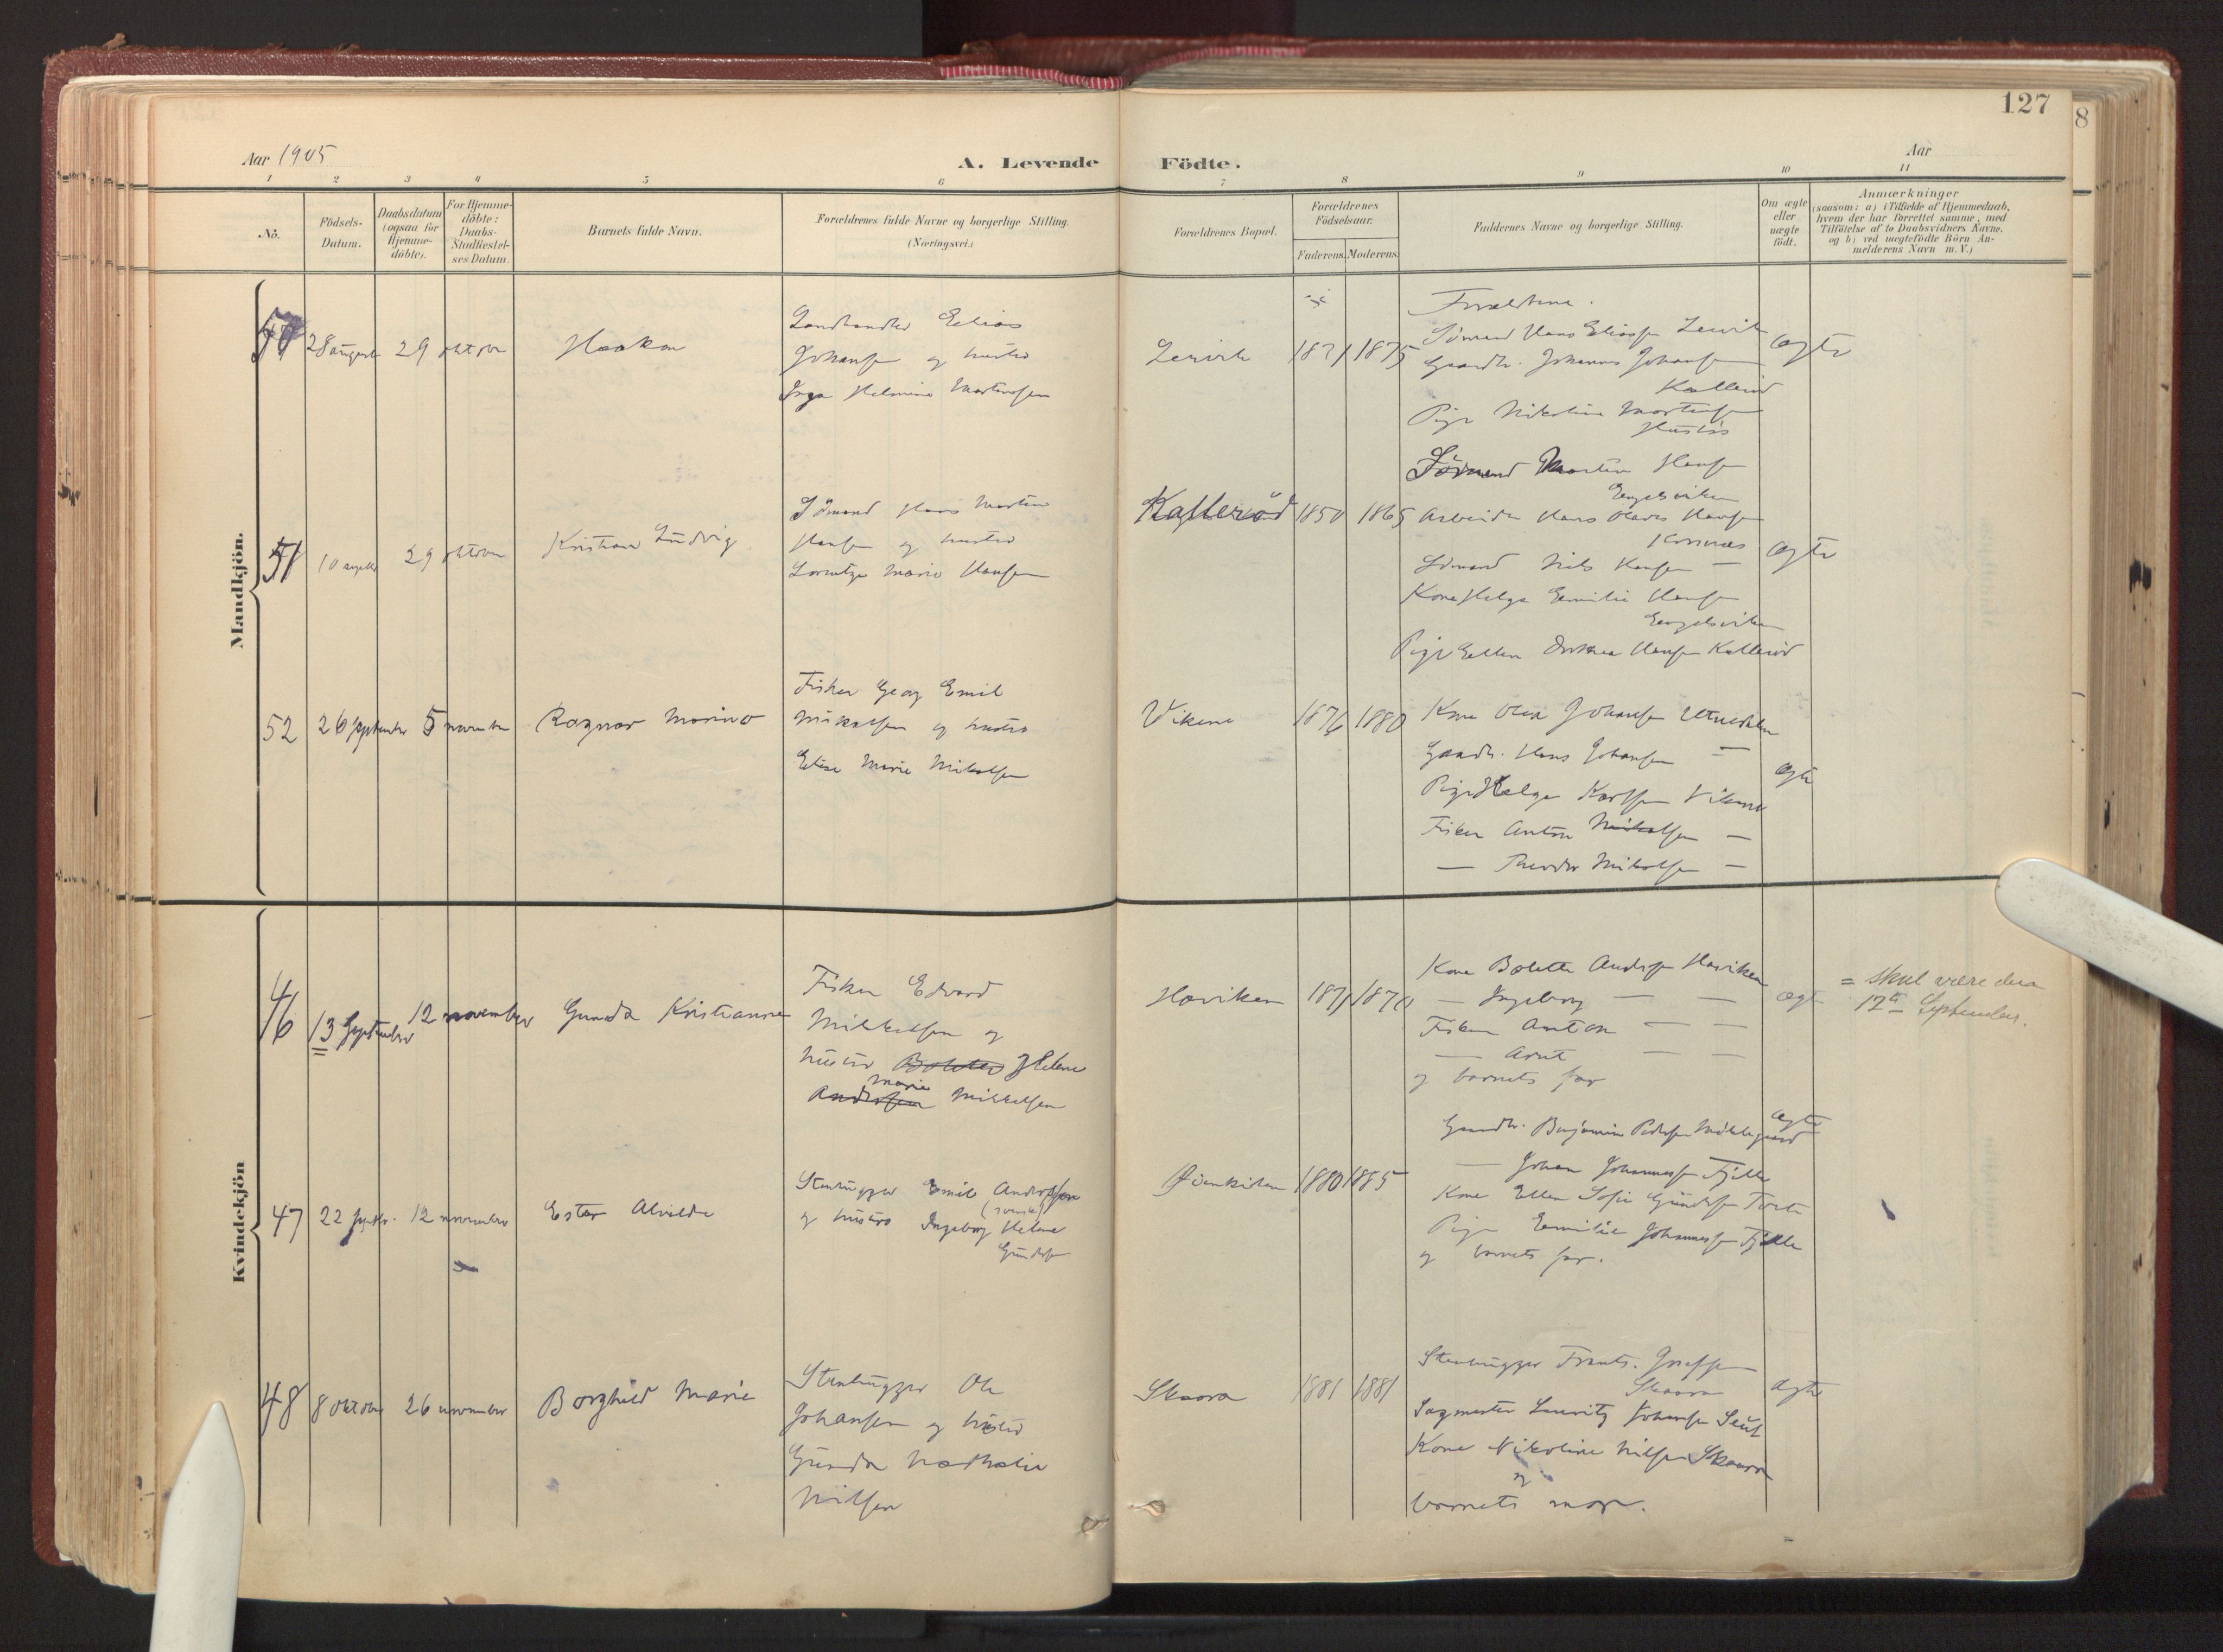 127
8
Aar 1905
A. Levende Födte.
Aar
1 2 3 4 5 6 7 8 9 10 11
No.
Födsels-Datum.
Daabsdatum (ogsaa for Hjemme-döbte).
For Hjemme-döbte: Daabs-Stadfestel-ses Datum.
Barnets fulde Navn.
Forældrenes fulde Navne og borgerlige Stilling.
(Næringsvei.)
Forældrenes Bopæl.
Forældrenes Födselsaar.
Faderens. Moderens.
Faddernes Navne og borgerlige Stilling.
Om ægte eller uægte födt.
Anmærkninger
(saasom: a) i Tilfælde af Hjemmedaab,
hvem der har forrettet samme, med
Tilföielse af to Daabsvidners Navne,
og b) ved uægtefödte Börn An-
melderens Navn m. V.)
Mandkjön.
50 28 august 29 oktober Haakon
Landhandler Elias
Johansen og hustru
Inga Helmine Martinsen
Lervik 1871 1875
Forældrene.
Sömand Hans Eliassen Lervik
Gaardbr. Johannes Johansen
Kallerød
Pige Nikoline Martinsen
ægte
51 10 septbr 29 oktober Kristian Ludvig
Sömand Hans Martin
Hansen og hustru
Lorentze Marie Hansen
Kallerød 1850 1865
Sömand Martin Hansen
Engelsviken
Arbeider Hans Olaves Hansen
Sömand Nils Hansen —
Kone Helga Emilie Hansen
Engelsviken
Pige Ellen Hansen Kallerød
ægte
52 26 september 5 november Ragnar Marino
Fisker Georg Emil
Mikalsen og hustru
Elise Marie Mikalsen
Vikene 1876 1880
Kone Olea Johansen
Gaardbr. Hans Johansen —
Pige Helga Karlsen Vikene
Fisker Anton Mikalsen —
— Theodor Mikalsen —
ægte
Kvindekjön
46 13 September 12 november Gunda Kristianne
Fisker Edvard
Mikkelsen og
hustru Bolette Helene
Marie
Andersen Mikkelsen
Haviken 1871 1870
Kone Bolette Andersen Haviken
— Ingeborg — —
Fisker Anton — —
— Arnt — —
og barnets far
ægte
= skal være den
12te September.
47 22 septbr. 12 november Ester Alvilde
Stenhugger Emil Andersson
(svensk)
og hustru Ingeborg Helene
Gundersen
1880 1885
Gaardbr. Benjamin Pedersen
— Johan Johannessen Fjelle
Kone Ellen Sofie Gundersen
Pige Emilie Johannessen Fjelle
og barnets far.
ægte
48 8 oktober 26 november Borghild Marie
Stenhugger Ole
Johansen og hustru
Gunda Nathalie
Nilsen
Skaara 1881 1881
Stenhugger Frants Josefsen
Skaara
Sagmester Lauritz Johansen
Kone Nikoline Nilsen Skaara
og
barnets mor.
ægte